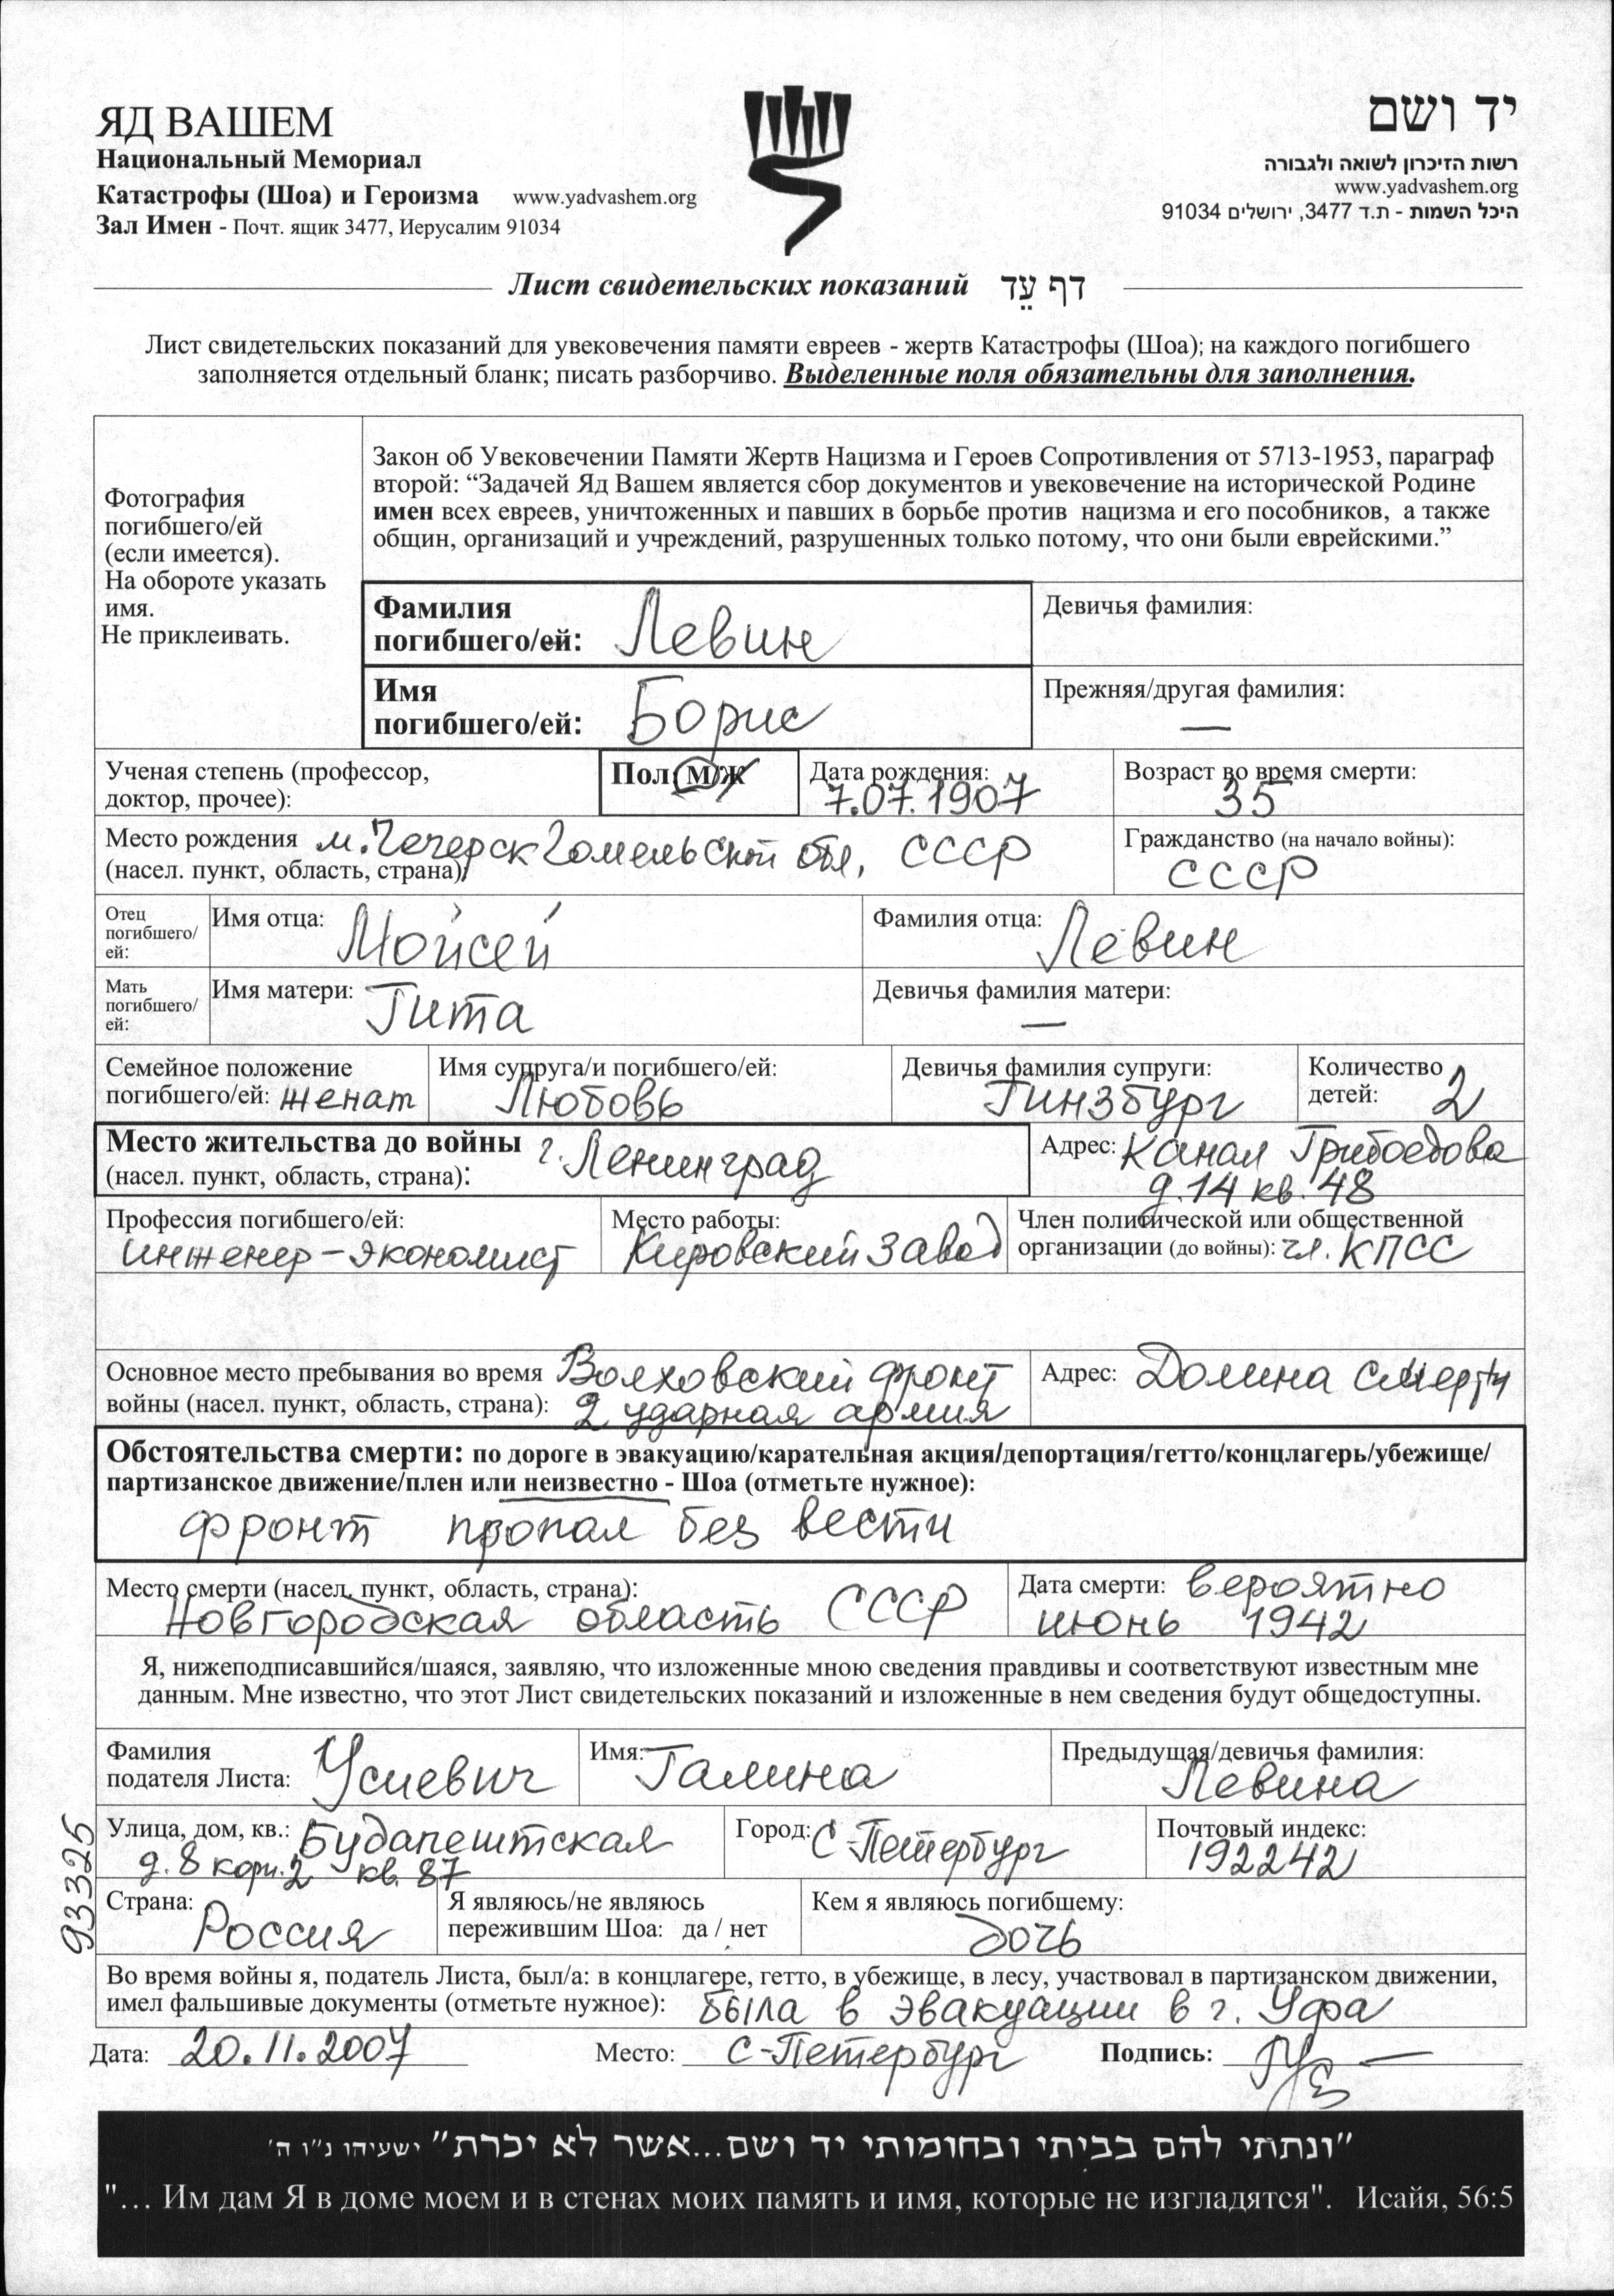 ЯД ВАШЕМ
Национальный Мемориал
Катастрофы (Шоа) и Героизма www.yadvashem.org
Зал Имен - Почт. ящик 3477, Иерусалим 91034
יד ושם
רשות הזיכרון לשואה ולגבורה
www.yadvashem.org
היכל השמות - ת.ד 3477, ירושלים 91034
Лист свидетельских показаний דף עֵד
Лист свидетельских показаний для увековечения памяти евреев - жертв Катастрофы (Шоа); на каждого погибшего
заполняется отдельный бланк; писать разборчиво. Выделенные поля обязательны для заполнения.
Фотография
погибшего/ей
(если имеется).
На обороте указать
имя.
Не приклеивать.
Закон об Увековечении Памяти Жертв Нацизма и Героев Сопротивления от 5713-1953, параграф
второй: “Задачей Яд Вашем является сбор документов и увековечение на исторической Родине
имен всех евреев, уничтоженных и павших в борьбе против нацизма и его пособников, а также
общин, организаций и учреждений, разрушенных только потому, что они были еврейскими.”
Фамилия
погибшего/ей: Левин
Девичья фамилия:
Имя
погибшего/ей: Борис
Прежняя/другая фамилия:
—
Ученая степень (профессор,
доктор, прочее):
Пол: М/Ж
Дата рождения:
7.07.1907
Возраст во время смерти:
35
Место рождения м. Чечерск Гомельской обл. СССР
(насел. пункт, область, страна):
Гражданство (на начало войны):
СССР
Отец
погибшего/
ей:
Имя отца: Мойсей
Фамилия отца: Левин
Мать
погибшего/
ей:
Имя матери: Гита
Девичья фамилия матери:
—
Семейное положение
погибшего/ей: женат
Имя супруга/и погибшего/ей:
Любовь
Девичья фамилия супруги:
Гинзбург
Количество
детей: 2
Место жительства до войны г. Ленинград
(насел. пункт, область, страна):
Адрес: Канал Грибоедова
д. 14 кв. 48
Профессия погибшего/ей:
инженер-экономист
Место работы:
Кировский завод
Член политической или общественной
организации (до войны): чл. КПСС
Основное место пребывания во время Волховский фронт
войны (насел. пункт, область, страна): 2 ударная армия
Адрес: Долина смерти
Обстоятельства смерти: по дороге в эвакуацию/карательная акция/депортация/гетто/концлагерь/убежище/
партизанское движение/плен или неизвестно - Шоа (отметьте нужное):
фронт пропал без вести
Место смерти (насел. пункт, область, страна):
Новгородская область СССР
Дата смерти: вероятно
июнь 1942
Я, нижеподписавшийся/шаяся, заявляю, что изложенные мною сведения правдивы и соответствуют известным мне
данным. Мне известно, что этот Лист свидетельских показаний и изложенные в нем сведения будут общедоступны.
Фамилия
подателя Листа: Усиевич
Имя: Галина
Предыдущая/девичья фамилия:
Левина
Улица, дом, кв.: Будапештская
д. 8 корп. 2 кв. 87
Город: С-Петербург
Почтовый индекс:
192242
93325
Страна:
Россия
Я являюсь/не являюсь
пережившим Шоа: да / нет
Кем я являюсь погибшему:
дочь
Во время войны я, податель Листа, был/а: в концлагере, гетто, в убежище, в лесу, участвовал в партизанском движении,
имел фальшивые документы (отметьте нужное): была в эвакуации в г. Уфа
Дата: 20.11.2007 Место: С-Петербург Подпись:
"ונתתי להם בביתי ובחומותי יד ושם...אשר לא יכרת" ישעיהו נ"ו ה'
"… Им дам Я в доме моем и в стенах моих память и имя, которые не изгладятся". Исайя, 56:5